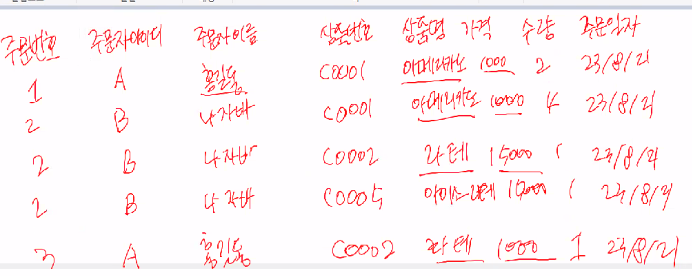 주문번호 주문자아이디 주문자이름 상품번호 상품명 가격 수량 주문일자
1 A 홍길동 C0001 아메리카노 1000 2 23/8/21
2 B 나자바 C0001 아메리카노 10000 4 23/8/21
2 B 나자바 C0002 라테 15000 1 23/8/21
2 B 나자바 C0005 아이스라테 1 23/8/21
3 A 홍길동 C0002 라테 1000 1 23/8/21